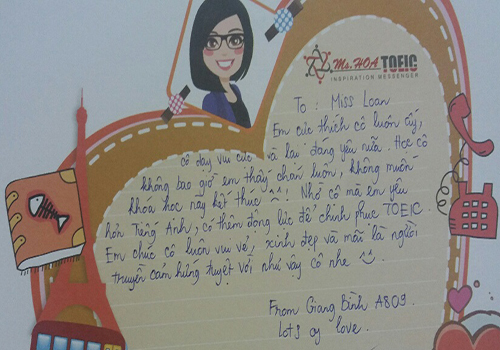 Ms. HOA TOEIC
INSPIRATION MESSENGER
To : Miss Loan
Em cực thích cô luôn ấy,
cô dạy vui cực và lại đáng yêu nữa. Học cô
không bao giờ em thấy chán luôn, không muốn
khóa học này kết thúc ^^! Nhờ cô mà em yêu
hơn Tiếng Anh, có thêm động lực để chinh phục TOEIC.
Em chúc cô luôn vui vẻ, xinh đẹp và mãi là người
truyền cảm hứng tuyệt vời như vậy cô nhe
From Giang Bình A809.
Lots of love.